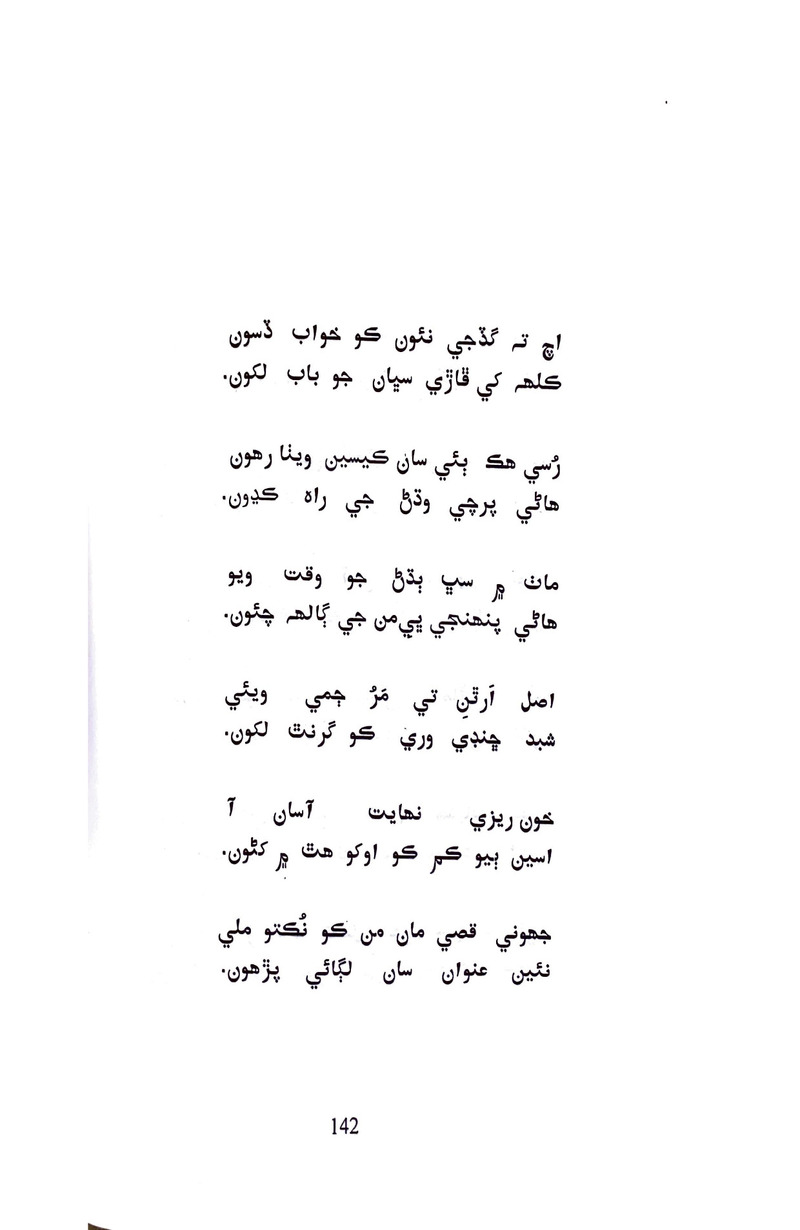 اچ تہ گڏجي نئون ڪو خواب ڏسون
ڪلهہ کي ڦاڙي سڀان جو باب لکون.
رُسي هڪ ٻئي سان ڪيسين ويٺا رهون
هاڻي پرچي وڌڻ جي راه ڪڍون.
ماٺ ۾ سڀ ٻڌڻ جو وقت ويو
هاڻي پنهنجي ڀي من جي ڳالهہ چئون.
اصل اَرٿنِ تي مَرُ ڄمي ويئي
شبد ڇنڊي وري ڪو گرنٿ لکون.
خون ريزي نهايت آسان آ
اسين ٻيو ڪم ڪو اوکو هٿ ۾ کڻون.
جهوني قصي مان من ڪو نُڪتو ملي
نئين عنوان سان لڳائي پڙهون.
142